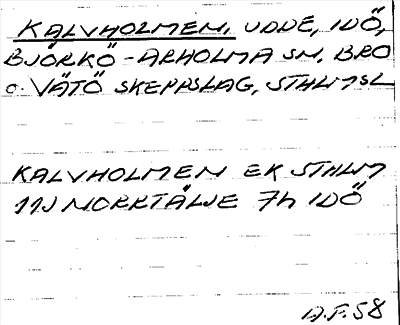 KALVHOLMEN, UDDE, IDÖ,
BJÖRKÖ-ARHOLMA SN, BRO
o. VÄTÖ SKEPPSLAG, STHLMSL
KALVHOLMEN EK STHLM
11J NORRTÄLJE 7h IDÖ
A.F. 58